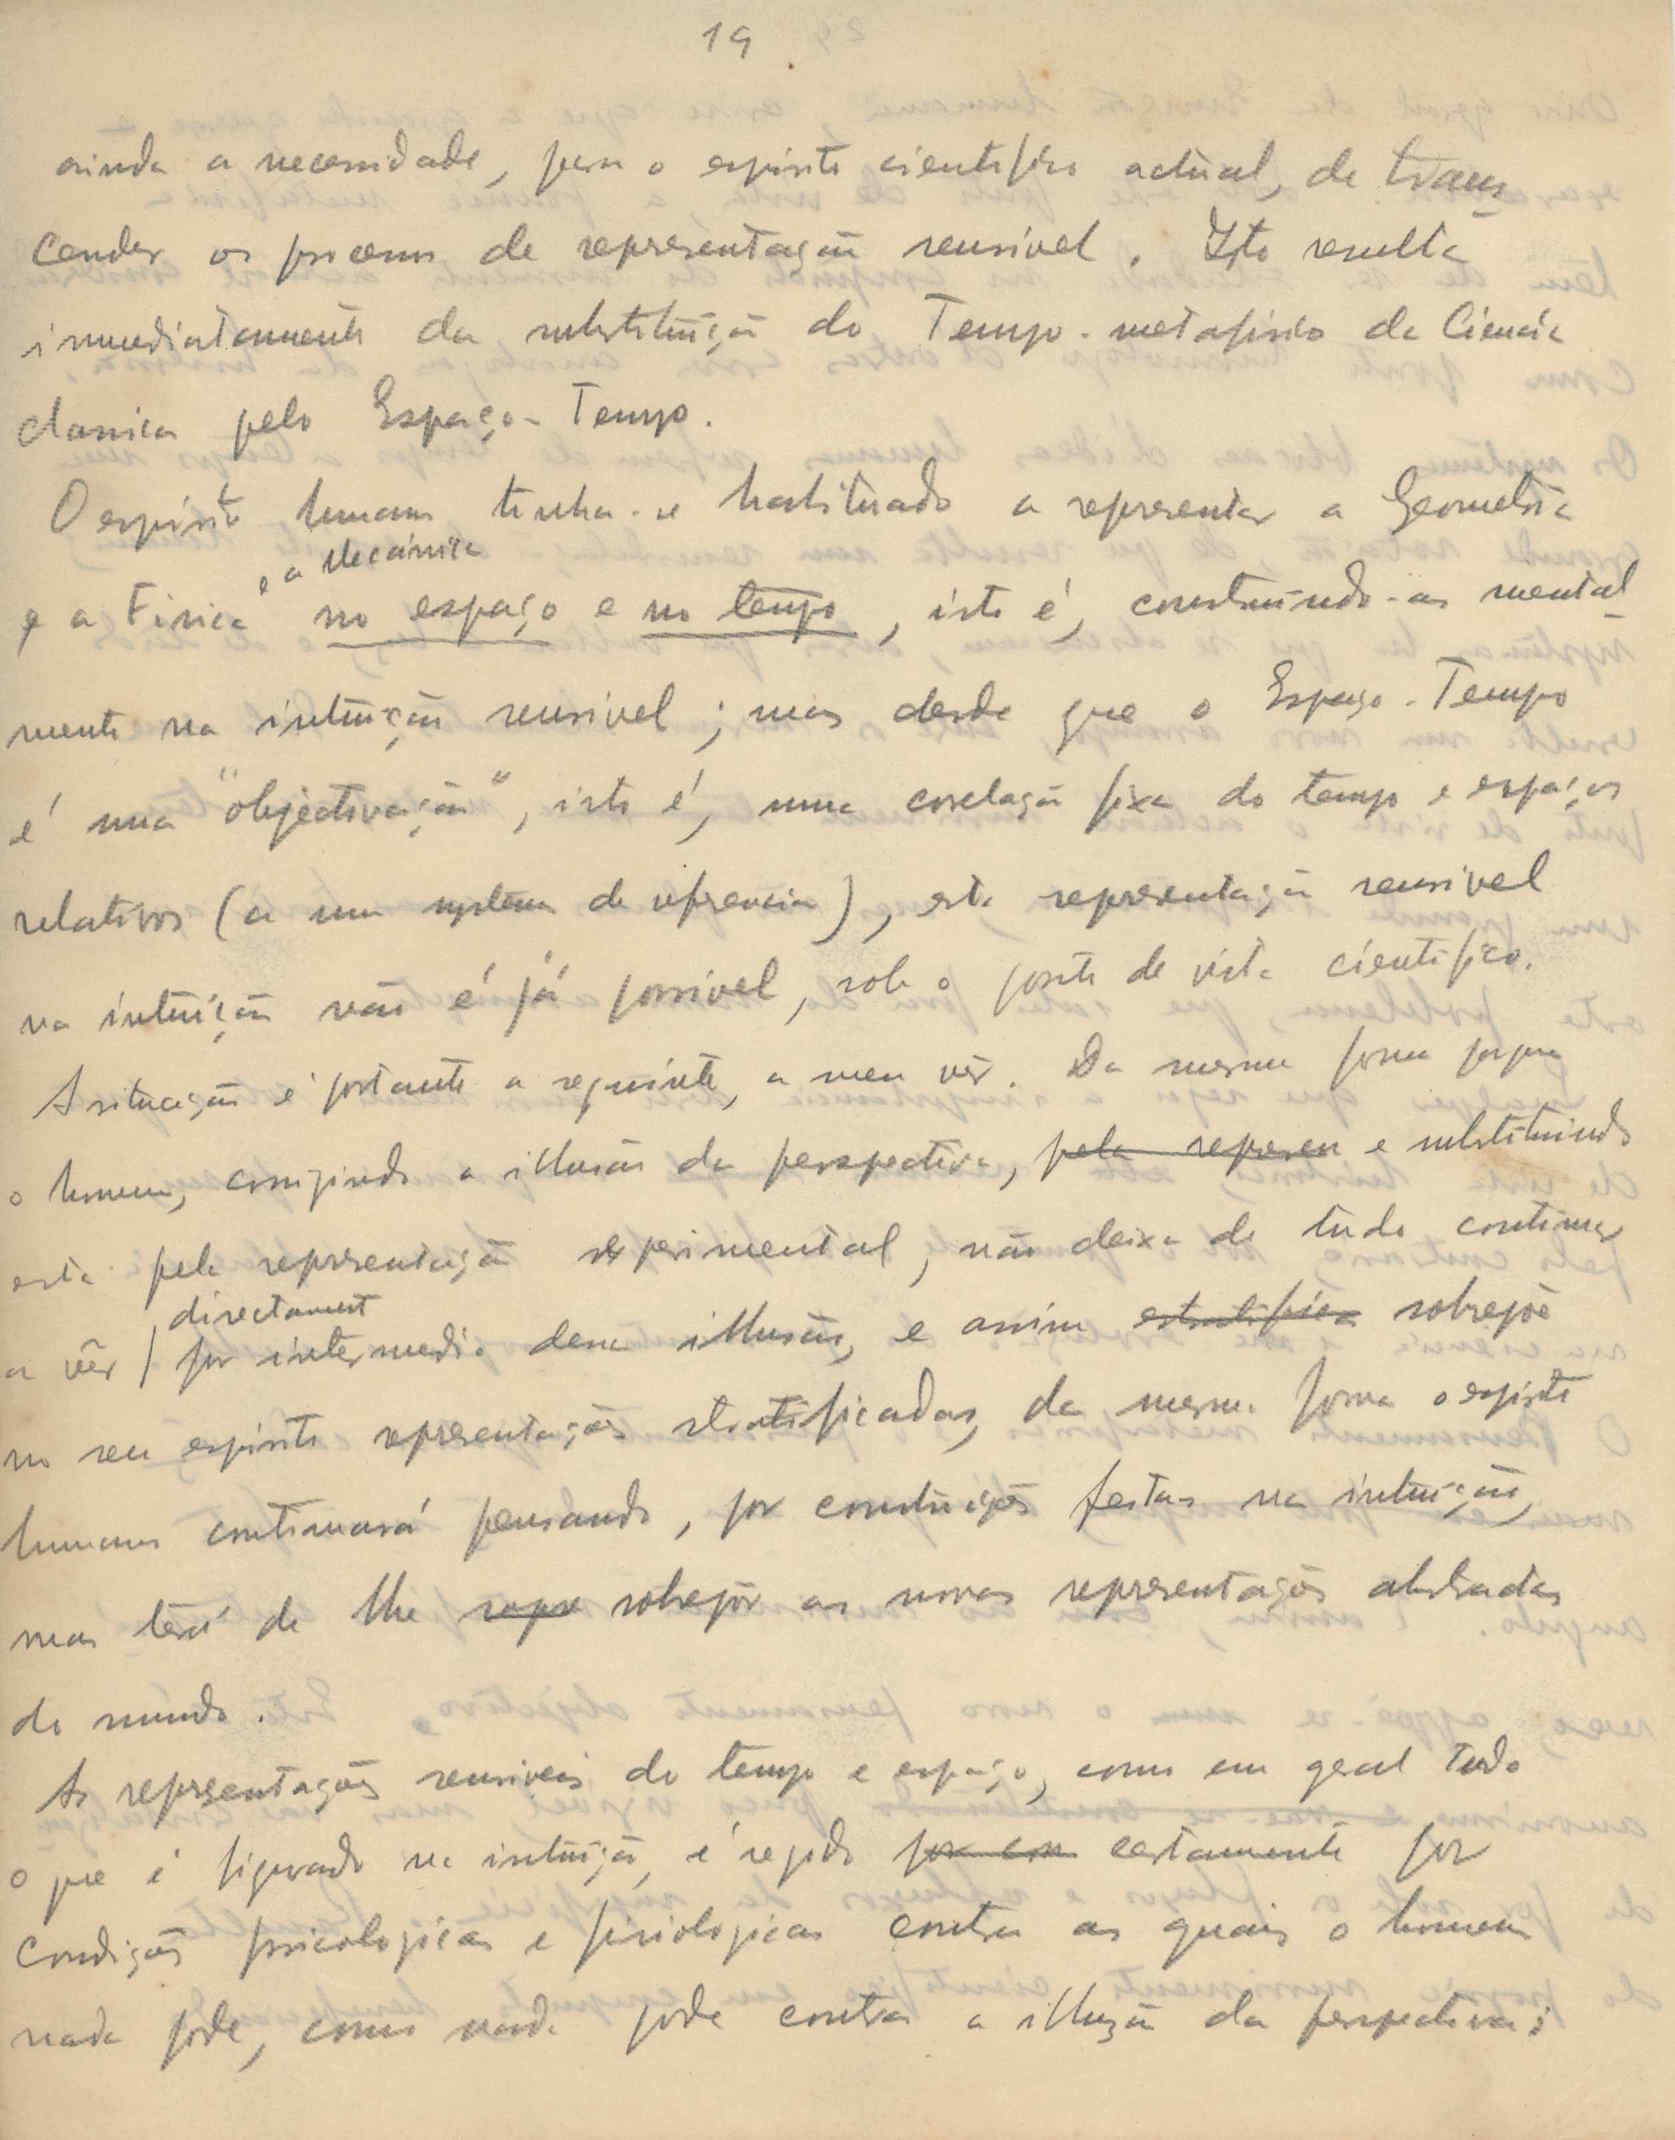 19
ainda a necessidade, para o espirito cientifico actual, de trans-
cender os processos de representação sensivel. Isto resulta
immediatamente da substituição do Tempo-metafisico da Ciencia
classica pelo Espaço-Tempo.
O espirito humano tinha-se habituado a representar a Geometria
, a Mecánica
e a Fisica no espaço e no tempo, isto é, construindo-as mental-
mente na intuição sensivel; mas desde que o Espaço-Tempo
é uma "objectivação", isto é, uma correlação fixa do tempo e espaços
relativos (a um systema de referencia), esta representação sensivel
na intuição não é já possivel, sob o ponto de vista cientifico.
A situação é portanto a seguinte, a meu vêr. Da mesma forma porque
o homem, corrigindo a illusão da perspectiva, pela represen e substituindo
esta pela representação experimental, não deixa de tudo continuar
directament
a vêr por intermedio dessa illusão, e assim estratifica sobrepõe
no seu espirito representações stratificadas, da mesma forma o espirito
humano continuará pensando, por construições feitas na intuição,
mas terá de lhe sopre sobrepôr as novas representações abstractas
do mundo.
As representações sensiveis do tempo e espaço, como em geral tudo
o que é figurado na intuição, é regido por con certamente por
condições psicologicas e fisiologicas contra as quais o homem
nada póde, como nada pode contra a illuzão da perspectiva;